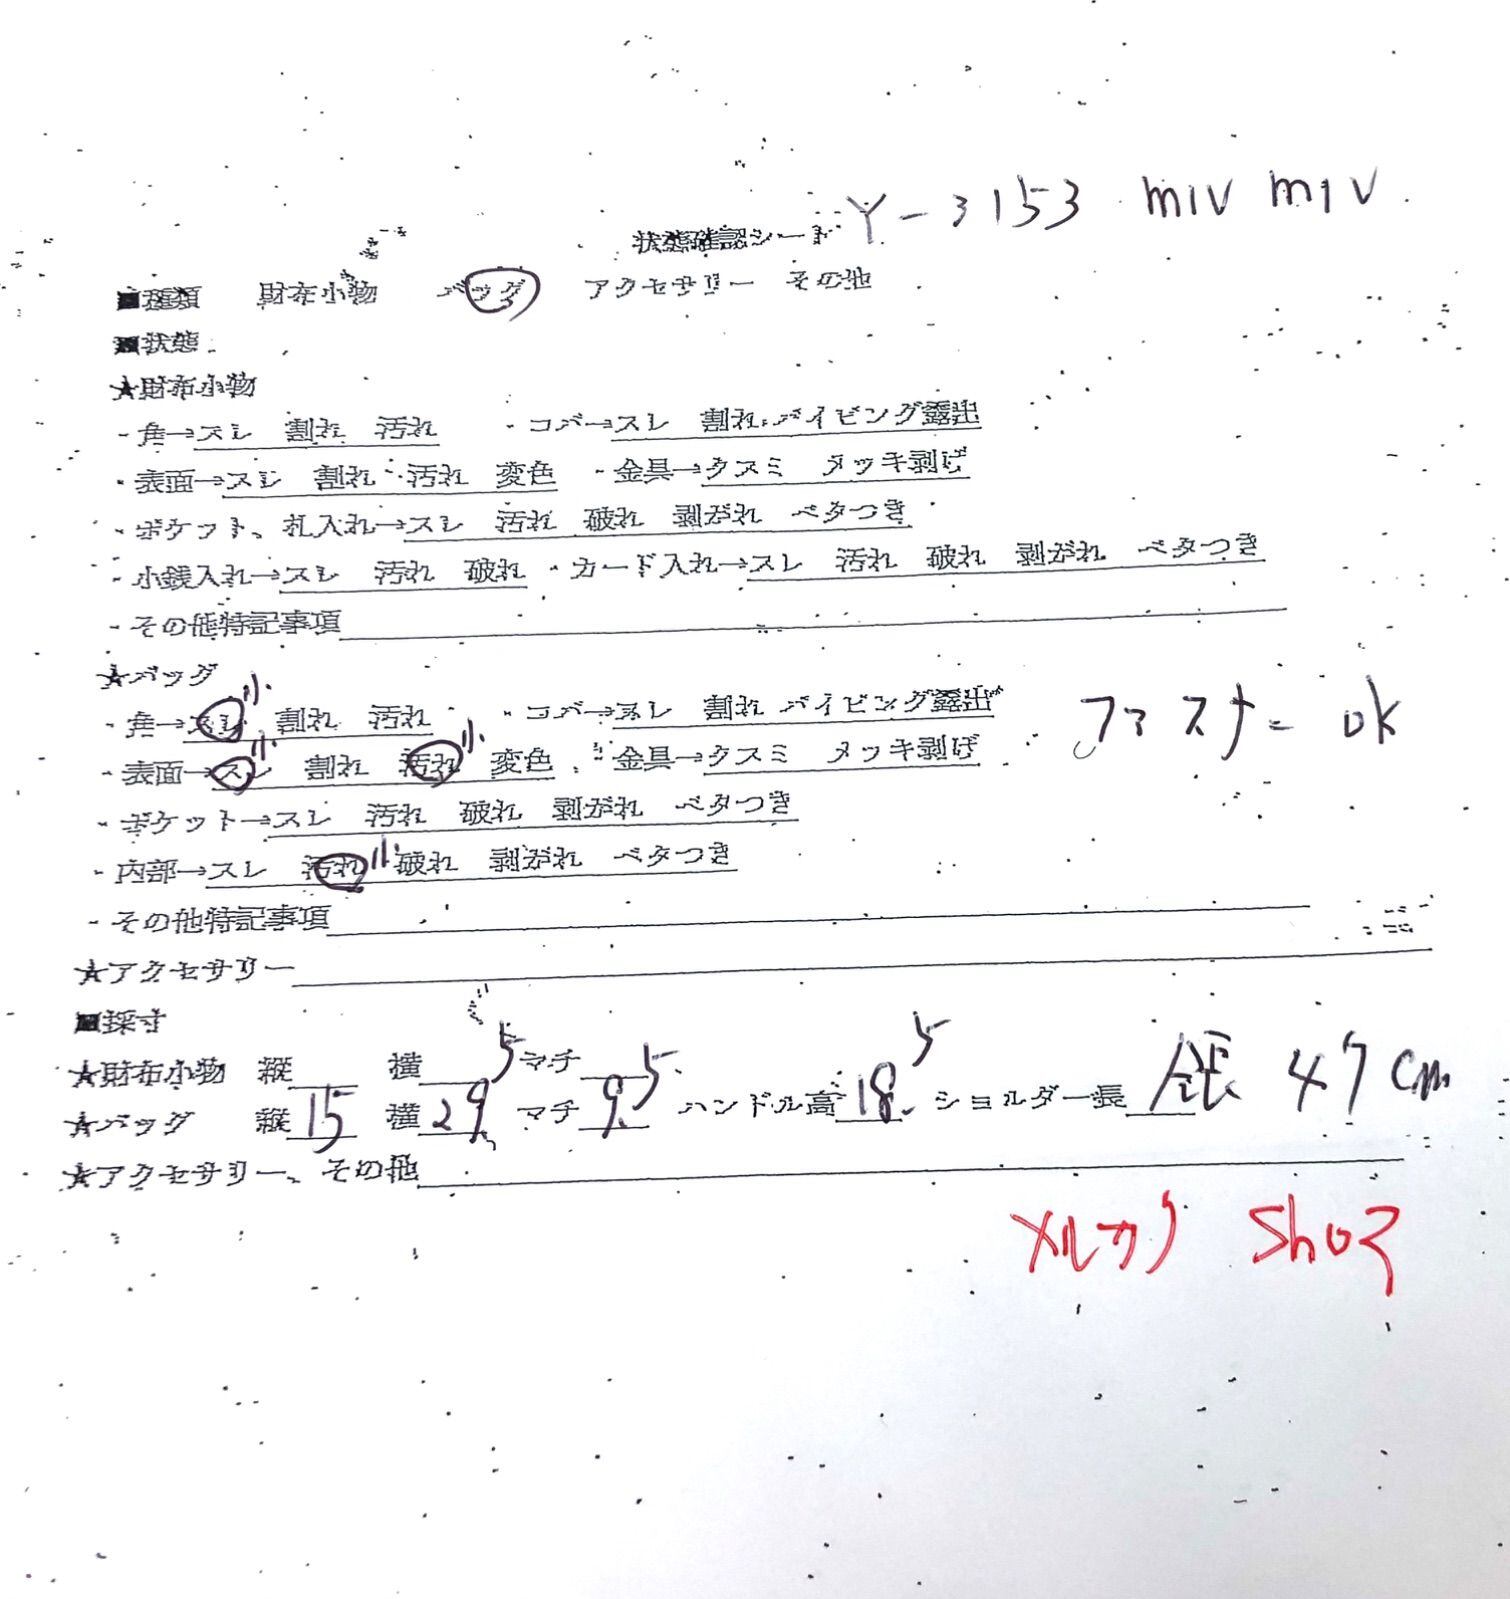 Y-3153 miv miv
状態確認シート
■種類 財布小物 バッグ アクセサリー その他
■状態
★財布小物
・角→スレ 割れ 汚れ ・コバ→スレ 割れ パイピング露出
・表面→スレ 割れ 汚れ 変色 ・金具→クスミ メッキ剥げ
・ポケット、札入れ→スレ 汚れ 破れ 剥がれ ベタつき
・小銭入れ→スレ 汚れ 破れ ・カード入れ→スレ 汚れ 破れ 剥がれ ベタつき
・その他特記事項
★バッグ
・角→スレ小 割れ 汚れ ・コバ→スレ 割れ パイピング露出 ファスナー ok
・表面→スレ小 割れ 汚れ小 変色 ・金具→クスミ メッキ剥げ
・ポケット→スレ 汚れ 破れ 剥がれ ベタつき
・内部→スレ 汚れ小 破れ 剥がれ ベタつき
・その他特記事項
★アクセサリー
■採寸
★財布小物 縦 横 マチ
★バッグ 縦15 横29.5 マチ9.5 ハンドル高18.5 ショルダー長 全長 47cm
★アクセサリー、その他
メルカリ Shop